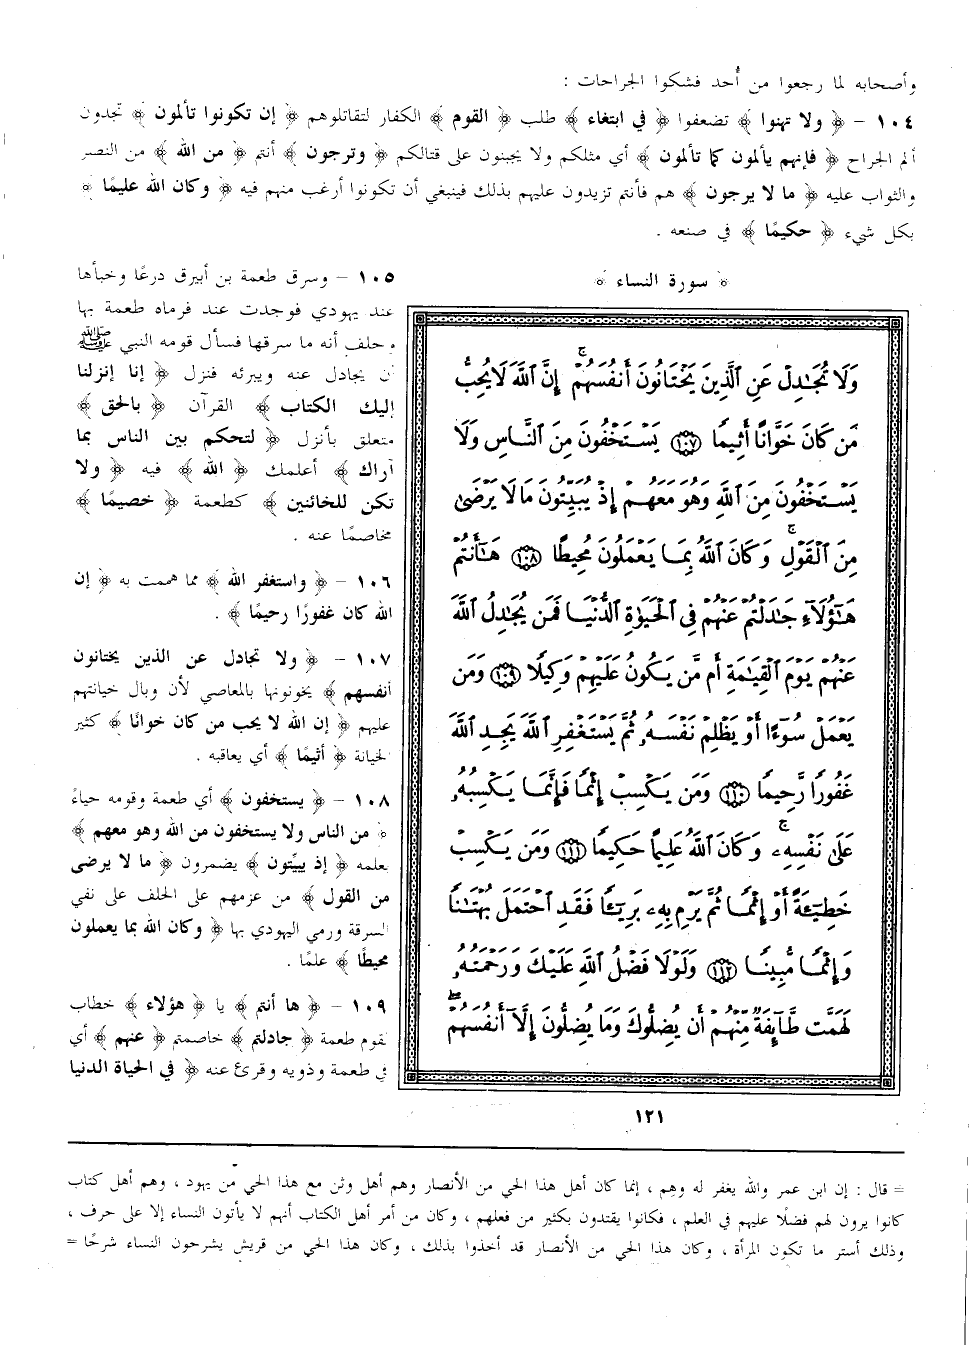 وأصحابه لما رجعوا من أُحد فشكوا الجراحات :
١٠٤ – ﴿ ولا تهنوا ﴾ تضعفوا ﴿ في ابتغاء ﴾ طلب ﴿ القوم ﴾ الكفار لتقاتلوهم ﴿ إن تكونوا تألمون ﴾ تجدون
ألم الجراح ﴿ فإنهم يألمون كما تألمون ﴾ أي مثلكم ولا يجبنون على قتالكم ﴿ وترجون ﴾ أنتم ﴿ من الله ﴾ من النصر
والثواب عليه ﴿ ما لا يرجون ﴾ هم فأنتم تزيدون عليهم بذلك فينبغي أن تكونوا أرغب منهم فيه ﴿ وكان الله عليمًا ﴾
بكل شيء ﴿ حكيمًا ﴾ في صنعه .
﴿ سورة النساء ﴾
وَلَا تُجَـٰدِلْ عَنِ ٱلَّذِينَ يَخْتَانُونَ أَنفُسَهُمْ ۚ إِنَّ ٱللَّهَ لَا يُحِبُّ
مَن كَانَ خَوَّانًا أَثِيمًا ١٠٧ يَسْتَخْفُونَ مِنَ ٱلنَّاسِ وَلَا
يَسْتَخْفُونَ مِنَ ٱللَّهِ وَهُوَ مَعَهُمْ إِذْ يُبَيِّتُونَ مَا لَا يَرْضَىٰ
مِنَ ٱلْقَوْلِ ۚ وَكَانَ ٱللَّهُ بِمَا يَعْمَلُونَ مُحِيطًا ١٠٨ هَـٰٓأَنتُمْ
هَـٰٓؤُلَآءِ جَـٰدَلْتُمْ عَنْهُمْ فِي ٱلْحَيَوٰةِ ٱلدُّنْيَا فَمَن يُجَـٰدِلُ ٱللَّهَ
عَنْهُمْ يَوْمَ ٱلْقِيَـٰمَةِ أَم مَّن يَكُونُ عَلَيْهِمْ وَكِيلًا ١٠٩ وَمَن
يَعْمَلْ سُوٓءًا أَوْ يَظْلِمْ نَفْسَهُۥ ثُمَّ يَسْتَغْفِرِ ٱللَّهَ يَجِدِ ٱللَّهَ
غَفُورًا رَّحِيمًا ١١٠ وَمَن يَكْسِبْ إِثْمًا فَإِنَّمَا يَكْسِبُهُۥ
عَلَىٰ نَفْسِهِۦ ۚ وَكَانَ ٱللَّهُ عَلِيمًا حَكِيمًا ١١١ وَمَن يَكْسِبْ
خَطِيٓـَٔةً أَوْ إِثْمًا ثُمَّ يَرْمِ بِهِۦ بَرِيٓـًٔا فَقَدِ ٱحْتَمَلَ بُهْتَـٰنًا
وَإِثْمًا مُّبِينًا ١١٢ وَلَوْلَا فَضْلُ ٱللَّهِ عَلَيْكَ وَرَحْمَتُهُۥ
لَهَمَّت طَّآئِفَةٌ مِّنْهُمْ أَن يُضِلُّوكَ وَمَا يُضِلُّونَ إِلَّآ أَنفُسَهُمْ ۖ
١٢١
١٠٥ – وسرق طعمة بن أبيرق درعًا وخبأها
عند يهودي فوجدت عند فرماه طعمة بها
وحلف أنه ما سرقها فسأل قومه النبي ﷺ
أن يجادل عنه ويبرئه فنزل ﴿ إنا إنزلنا
إليك الكتاب ﴾ القرآن ﴿ بالحق ﴾
متعلق بأنزل ﴿ لتحكم بين الناس بما
أراك ﴾ أعلمك ﴿ الله ﴾ فيه ﴿ ولا
تكن للخائنين ﴾ كطعمة ﴿ خصيمًا ﴾
مخاصمًا عنه .
١٠٦ – ﴿ واستغفر الله ﴾ مما هممت به ﴿ إن
الله كان غفورًا رحيمًا ﴾ .
١٠٧ – ﴿ ولا تجادل عن الذين يختانون
أنفسهم ﴾ يخونونها بالمعاصي لأن وبال خيانتهم
عليهم ﴿ إن الله لا يحب من كان خوانًا ﴾ كثير
الخيانة ﴿ أثيمًا ﴾ أي يعاقبه .
١٠٨ – ﴿ يستخفون ﴾ أي طعمة وقومه حياءً
﴿ من الناس ولا يستخفون من الله وهو معهم ﴾
بعلمه ﴿ إذ يبيّتون ﴾ يضمرون ﴿ ما لا يرضى
من القول ﴾ من عزمهم على الحلف على نفي
السرقة ورمي اليهودي بها ﴿ وكان الله بما يعملون
محيطًا ﴾ علمًا .
١٠٩ – ﴿ ها أنتم ﴾ يا ﴿ هؤلاء ﴾ خطاب
لقوم طعمة ﴿ جادلتم ﴾ خاصمتم ﴿ عنهم ﴾ أي
في طعمة وذويه وقرئ عنه ﴿ في الحياة الدنيا
= قال : إن ابن عمر والله يغفر له وهِم ، إنما كان أهل هذا الحي من الأنصار وهم أهل وثن مع هذا الحي من يهود ، وهم أهل كتاب
كانوا يرون لهم فضلًا عليهم في العلم ، فكانوا يقتدون بكثير من فعلهم ، وكان من أمر أهل الكتاب أنهم لا يأتون النساء إلا على حرف ،
وذلك أستر ما تكون المرأة ، وكان هذا الحي من الأنصار قد أخذوا بذلك ، وكان هذا الحي من قريش يشرحون النساء شرحًا =